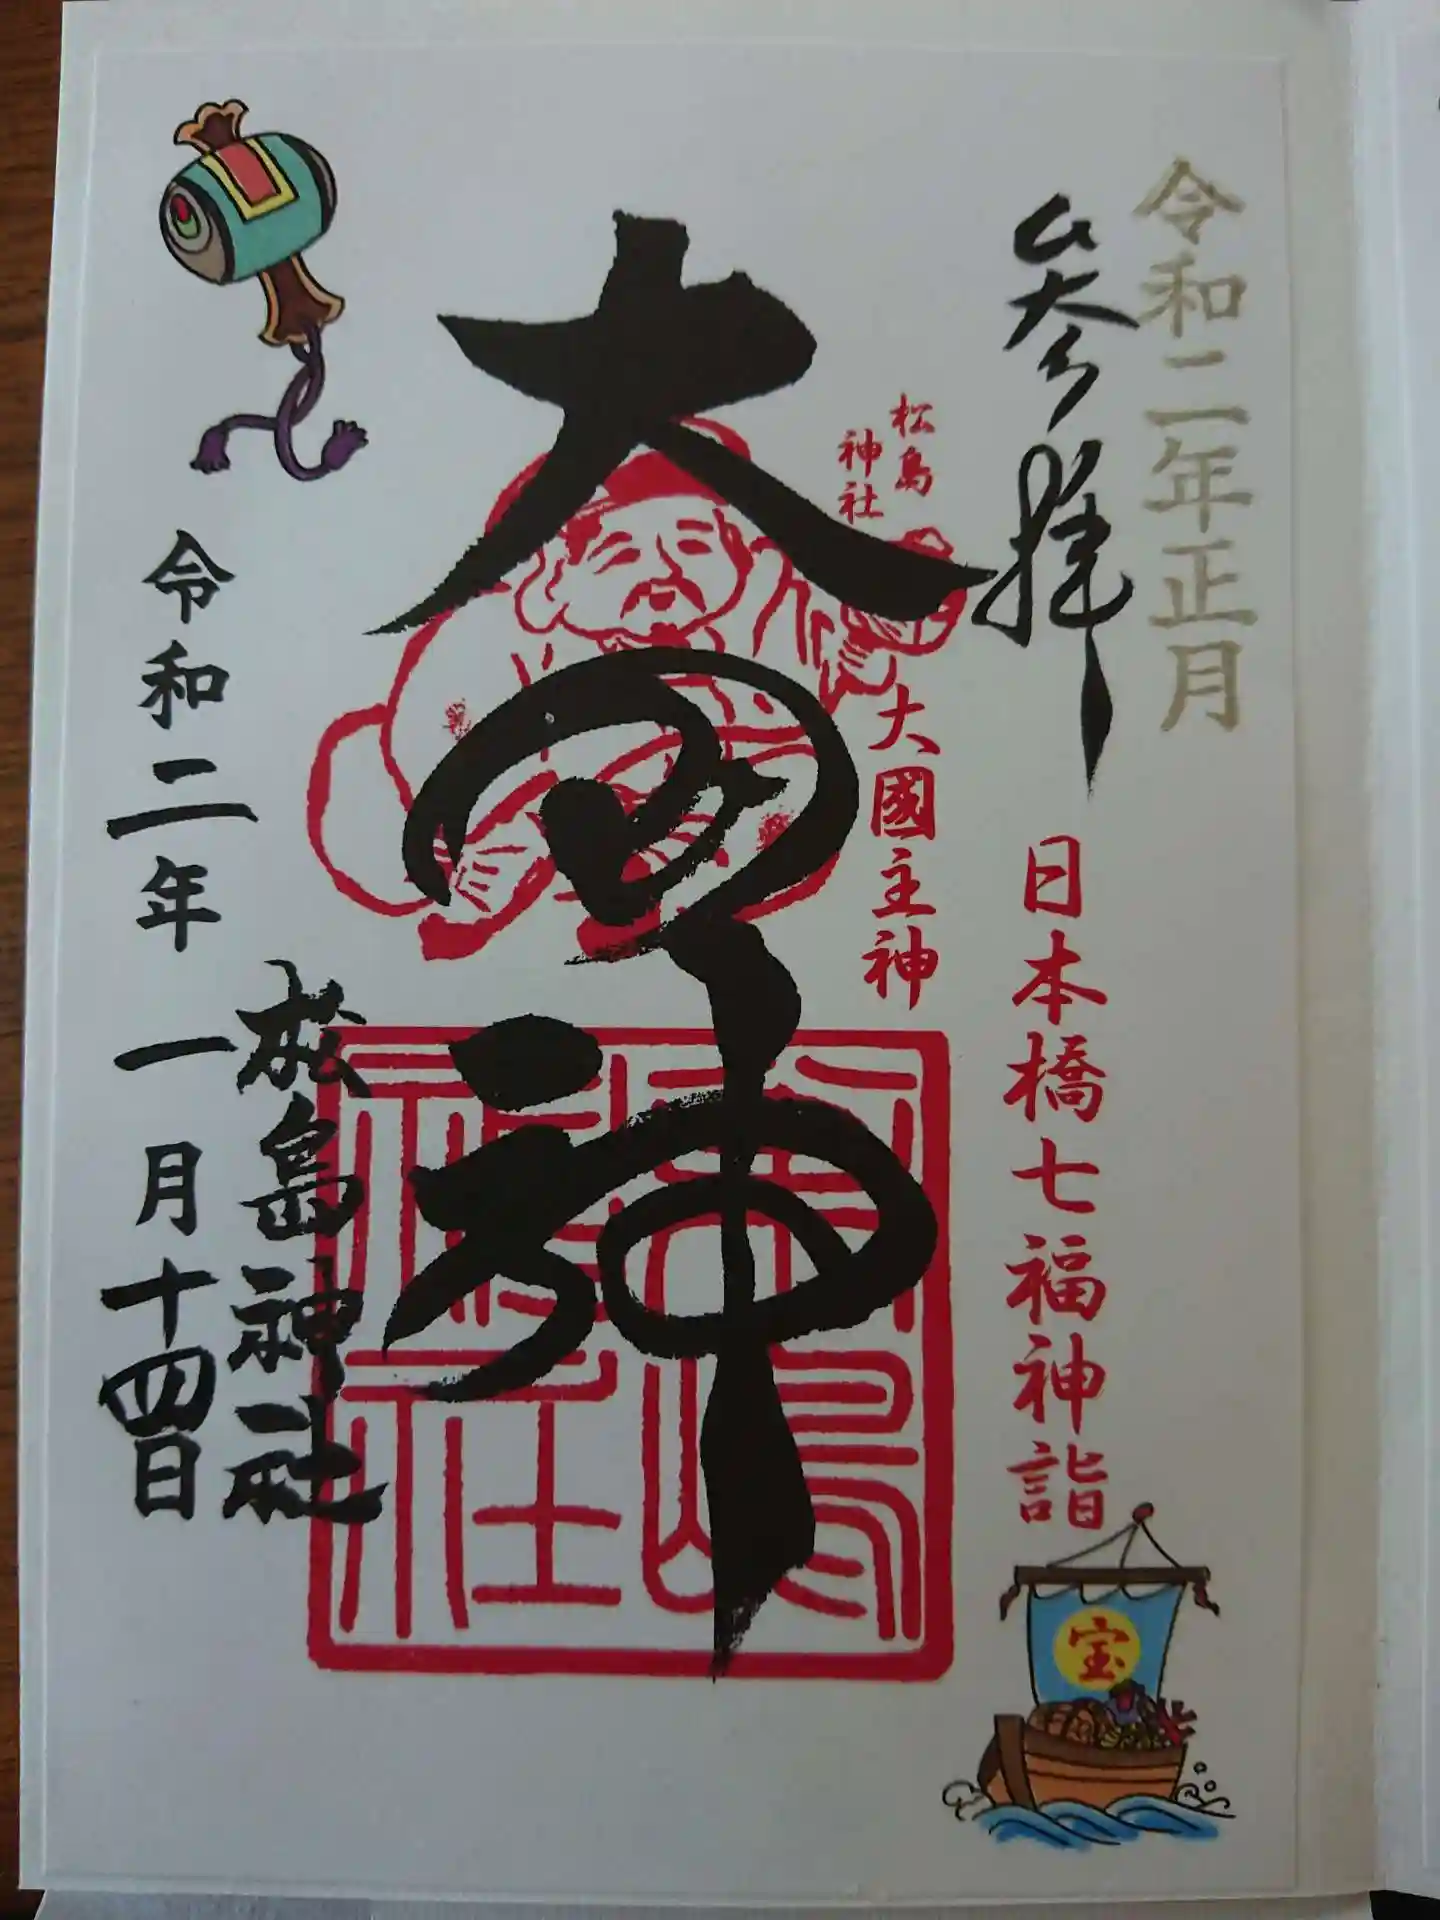 令和二年正月
参拝
日本橋七福神詣
宝
松島
神社
大國主神
大国神
松島神社
令和二年一月十四日